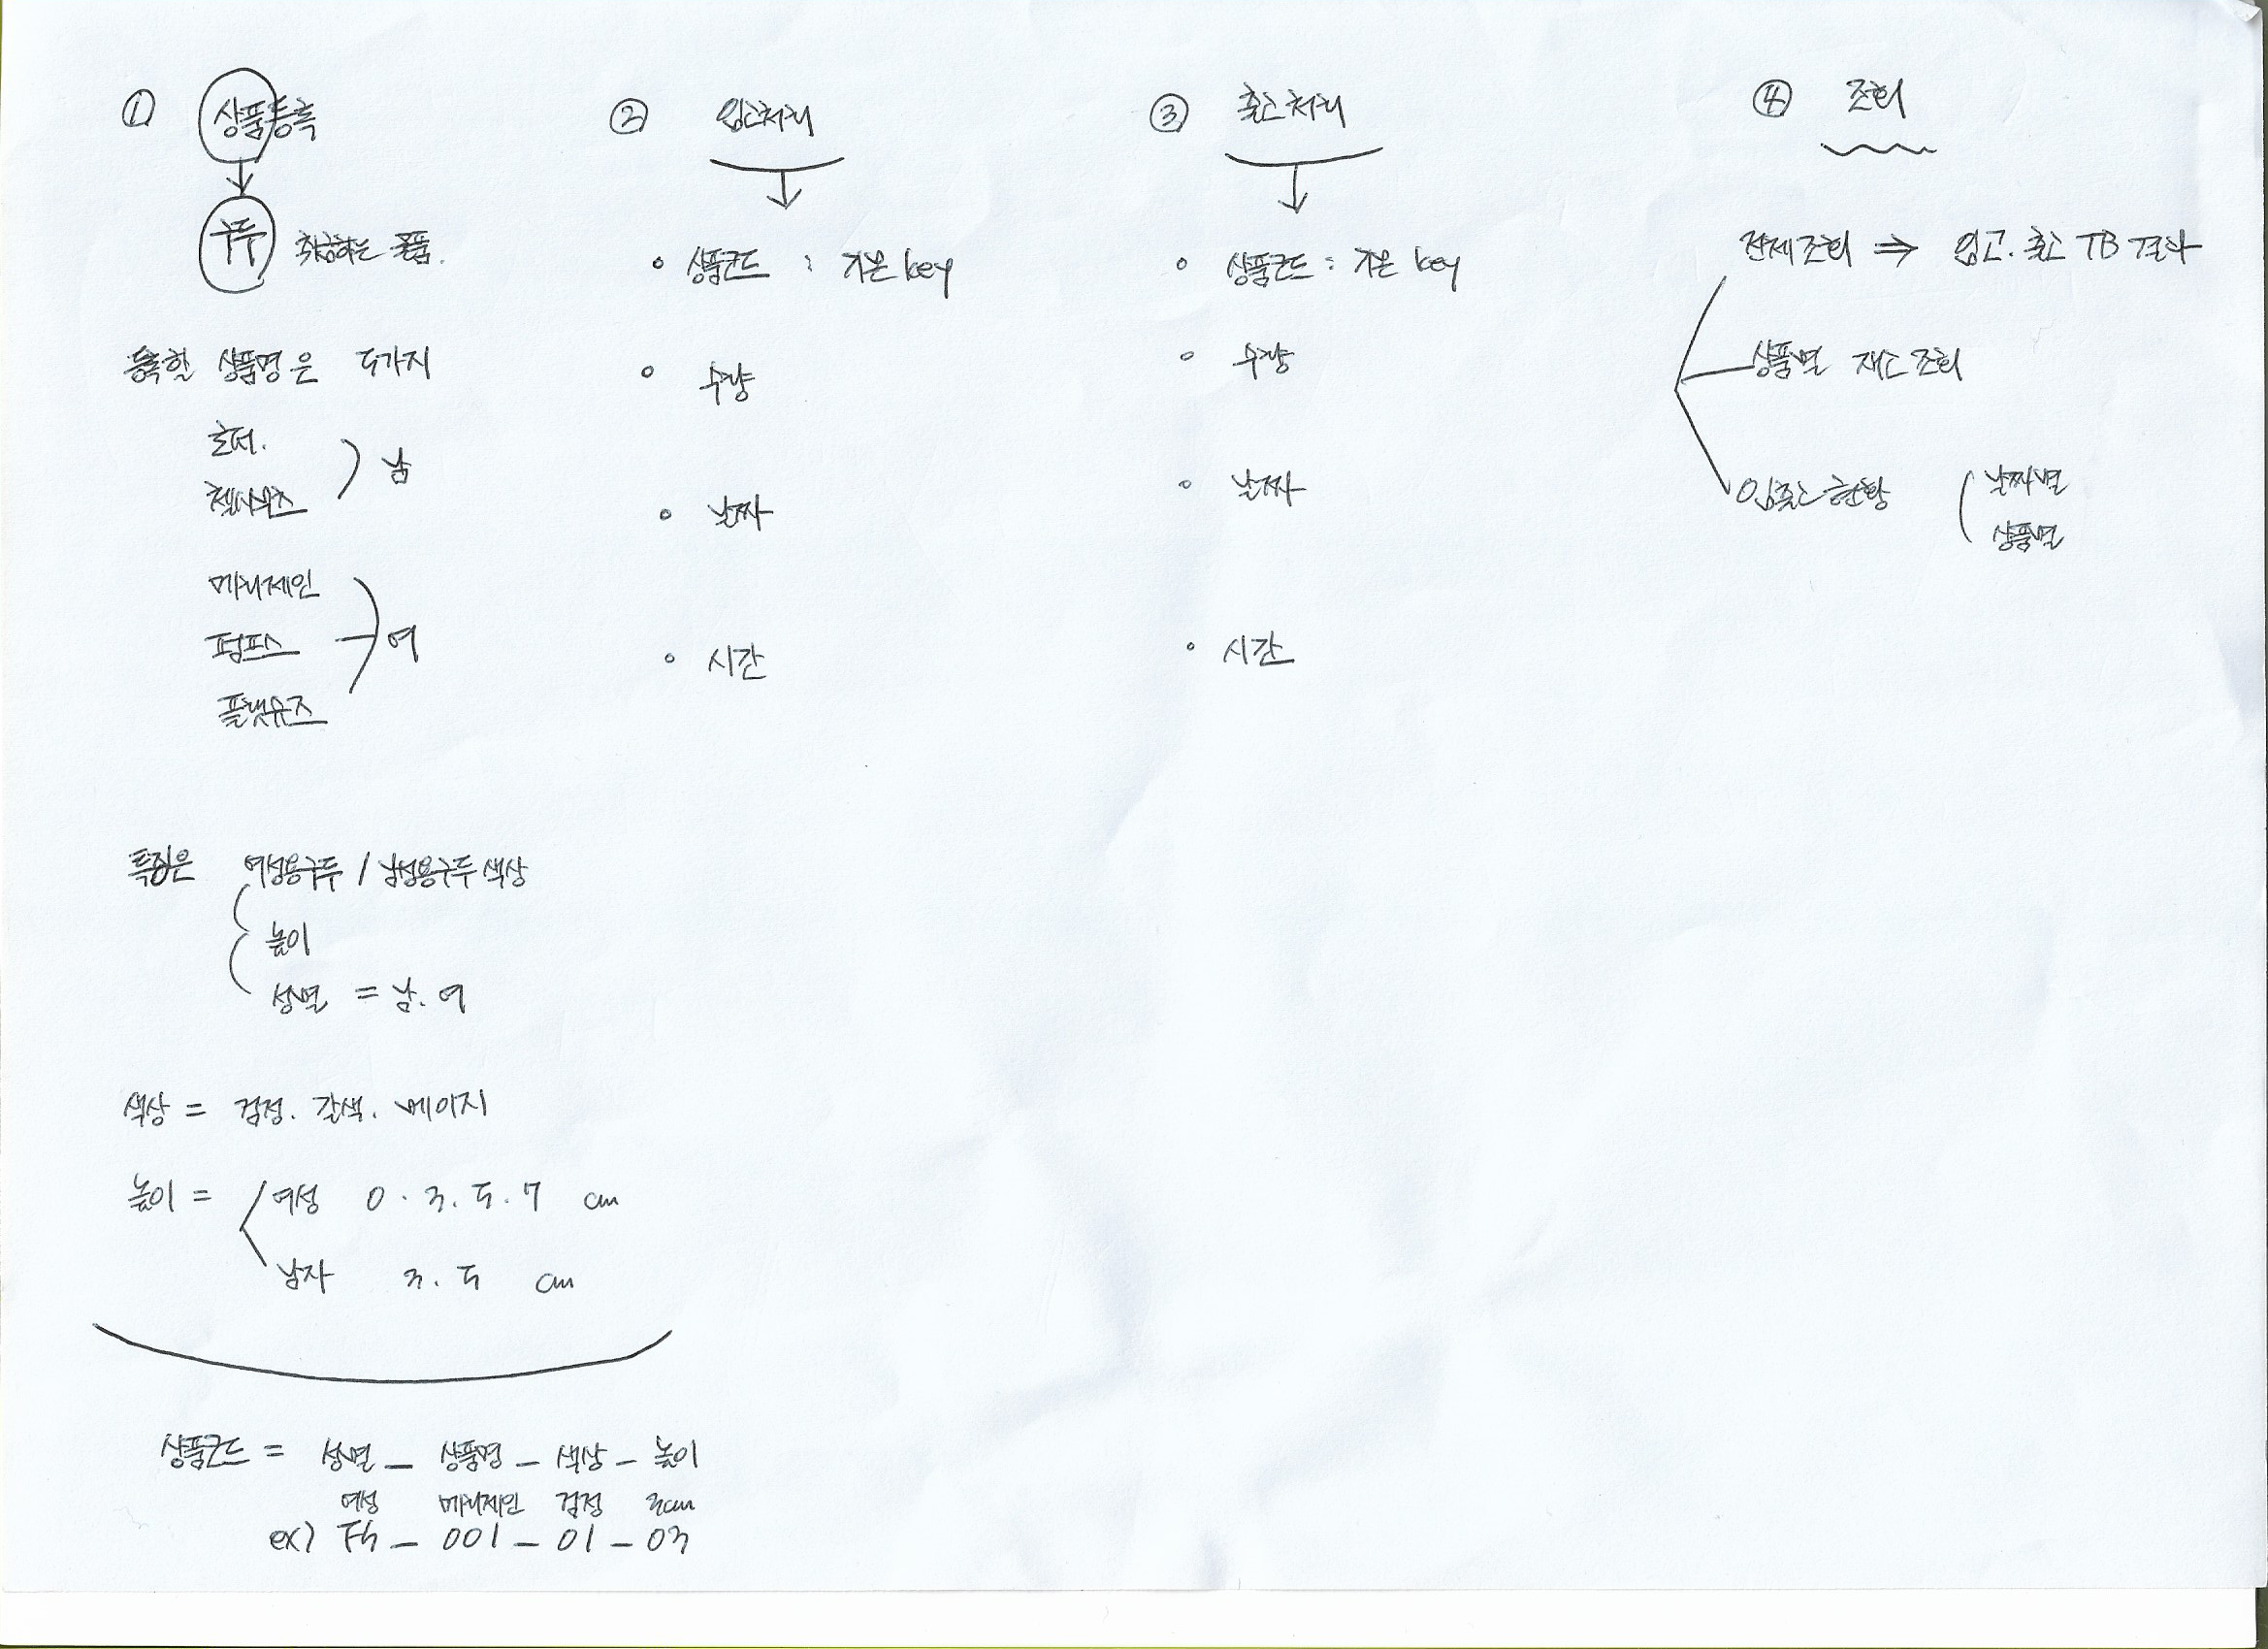 ① 상품등록
구두 취급하는 물품.
등록할 상품명은 5가지
로퍼.
첼시부츠
남
메리제인
펌프스
여
플랫슈즈
특징은 여성용구두 / 남성용구두 색상
높이
성별 = 남. 여
색상 = 검정. 갈색. 베이지
높이 = 여성 0. 3. 5. 7 cm
남자 3. 5 cm
상품코드 = 성별 - 상품명 - 색상 - 높이
여성 메리제인 검정 3cm
ex) FS - 001 - 01 - 03
② 입고처리
상품코드 : 기본 key
수량
날짜
시간
③ 출고처리
상품코드 : 기본 key
수량
날짜
시간
④ 조회
전체조회 ⇒ 입고. 출고 TB 결과
상품별 재고 조회
입출고 현황
날짜별
상품별